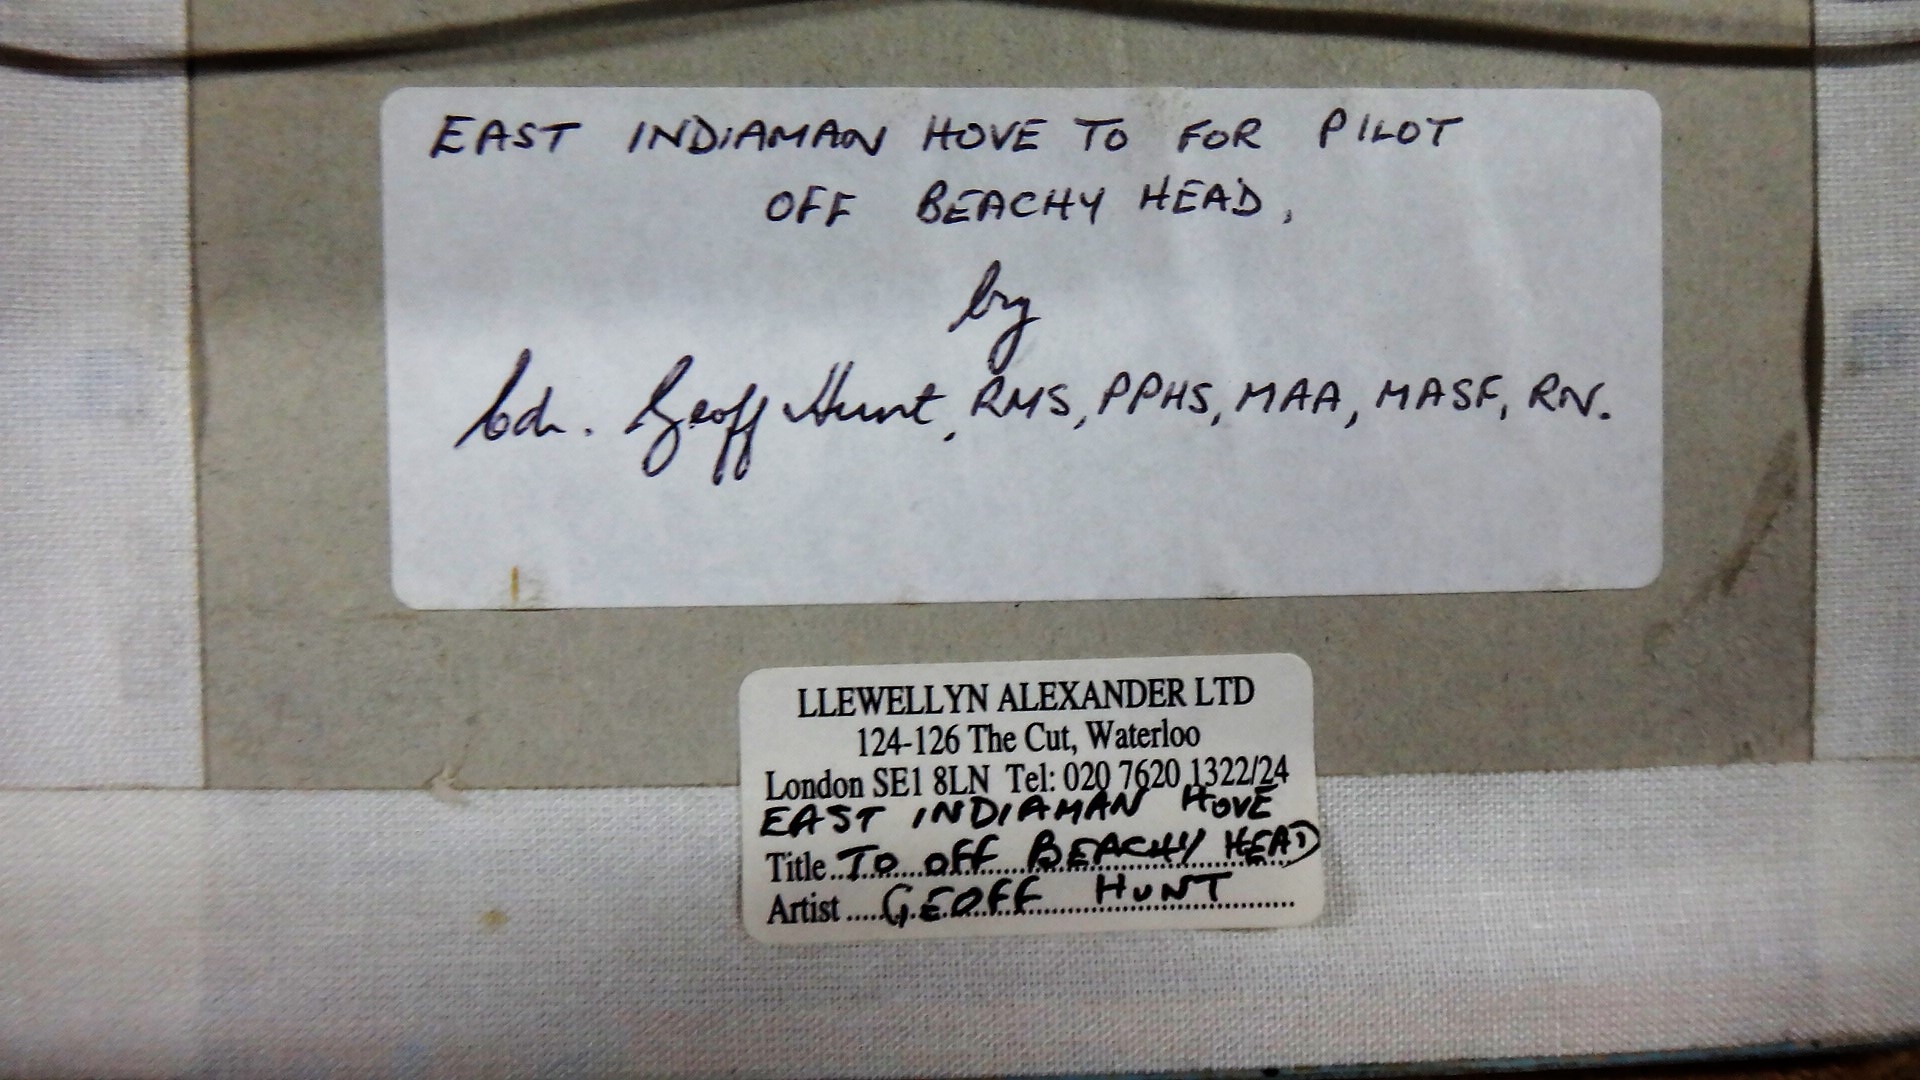 EAST INDIAMAN HOVE TO FOR PILOT
OFF BEACHY HEAD.
by
Cdr. Geoff Hunt, RMS, PPHS, MAA, MASF, RN.
LLEWELLYN ALEXANDER LTD
124-126 The Cut, Waterloo
London SE1 8LN Tel: 020 7620 1322/24
EAST INDIAMAN HOVE
Title..TO OFF BEACHY HEAD
Artist.....GEOFF HUNT